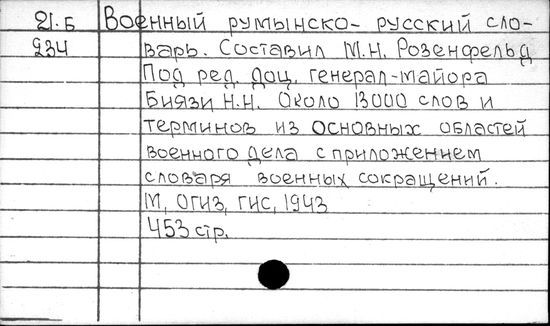 21.Б Военный румынско- русский сло-
934 варь. Составил М.Н. Розенфельд
Под ред. доц. генерал-майора
Биязи Н.Н. Около 13000 слов и
терминов из основных областей
военного дела с приложением
словаря военных сокращений.
М, ОГИЗ, ГИС, 1943
453 стр.